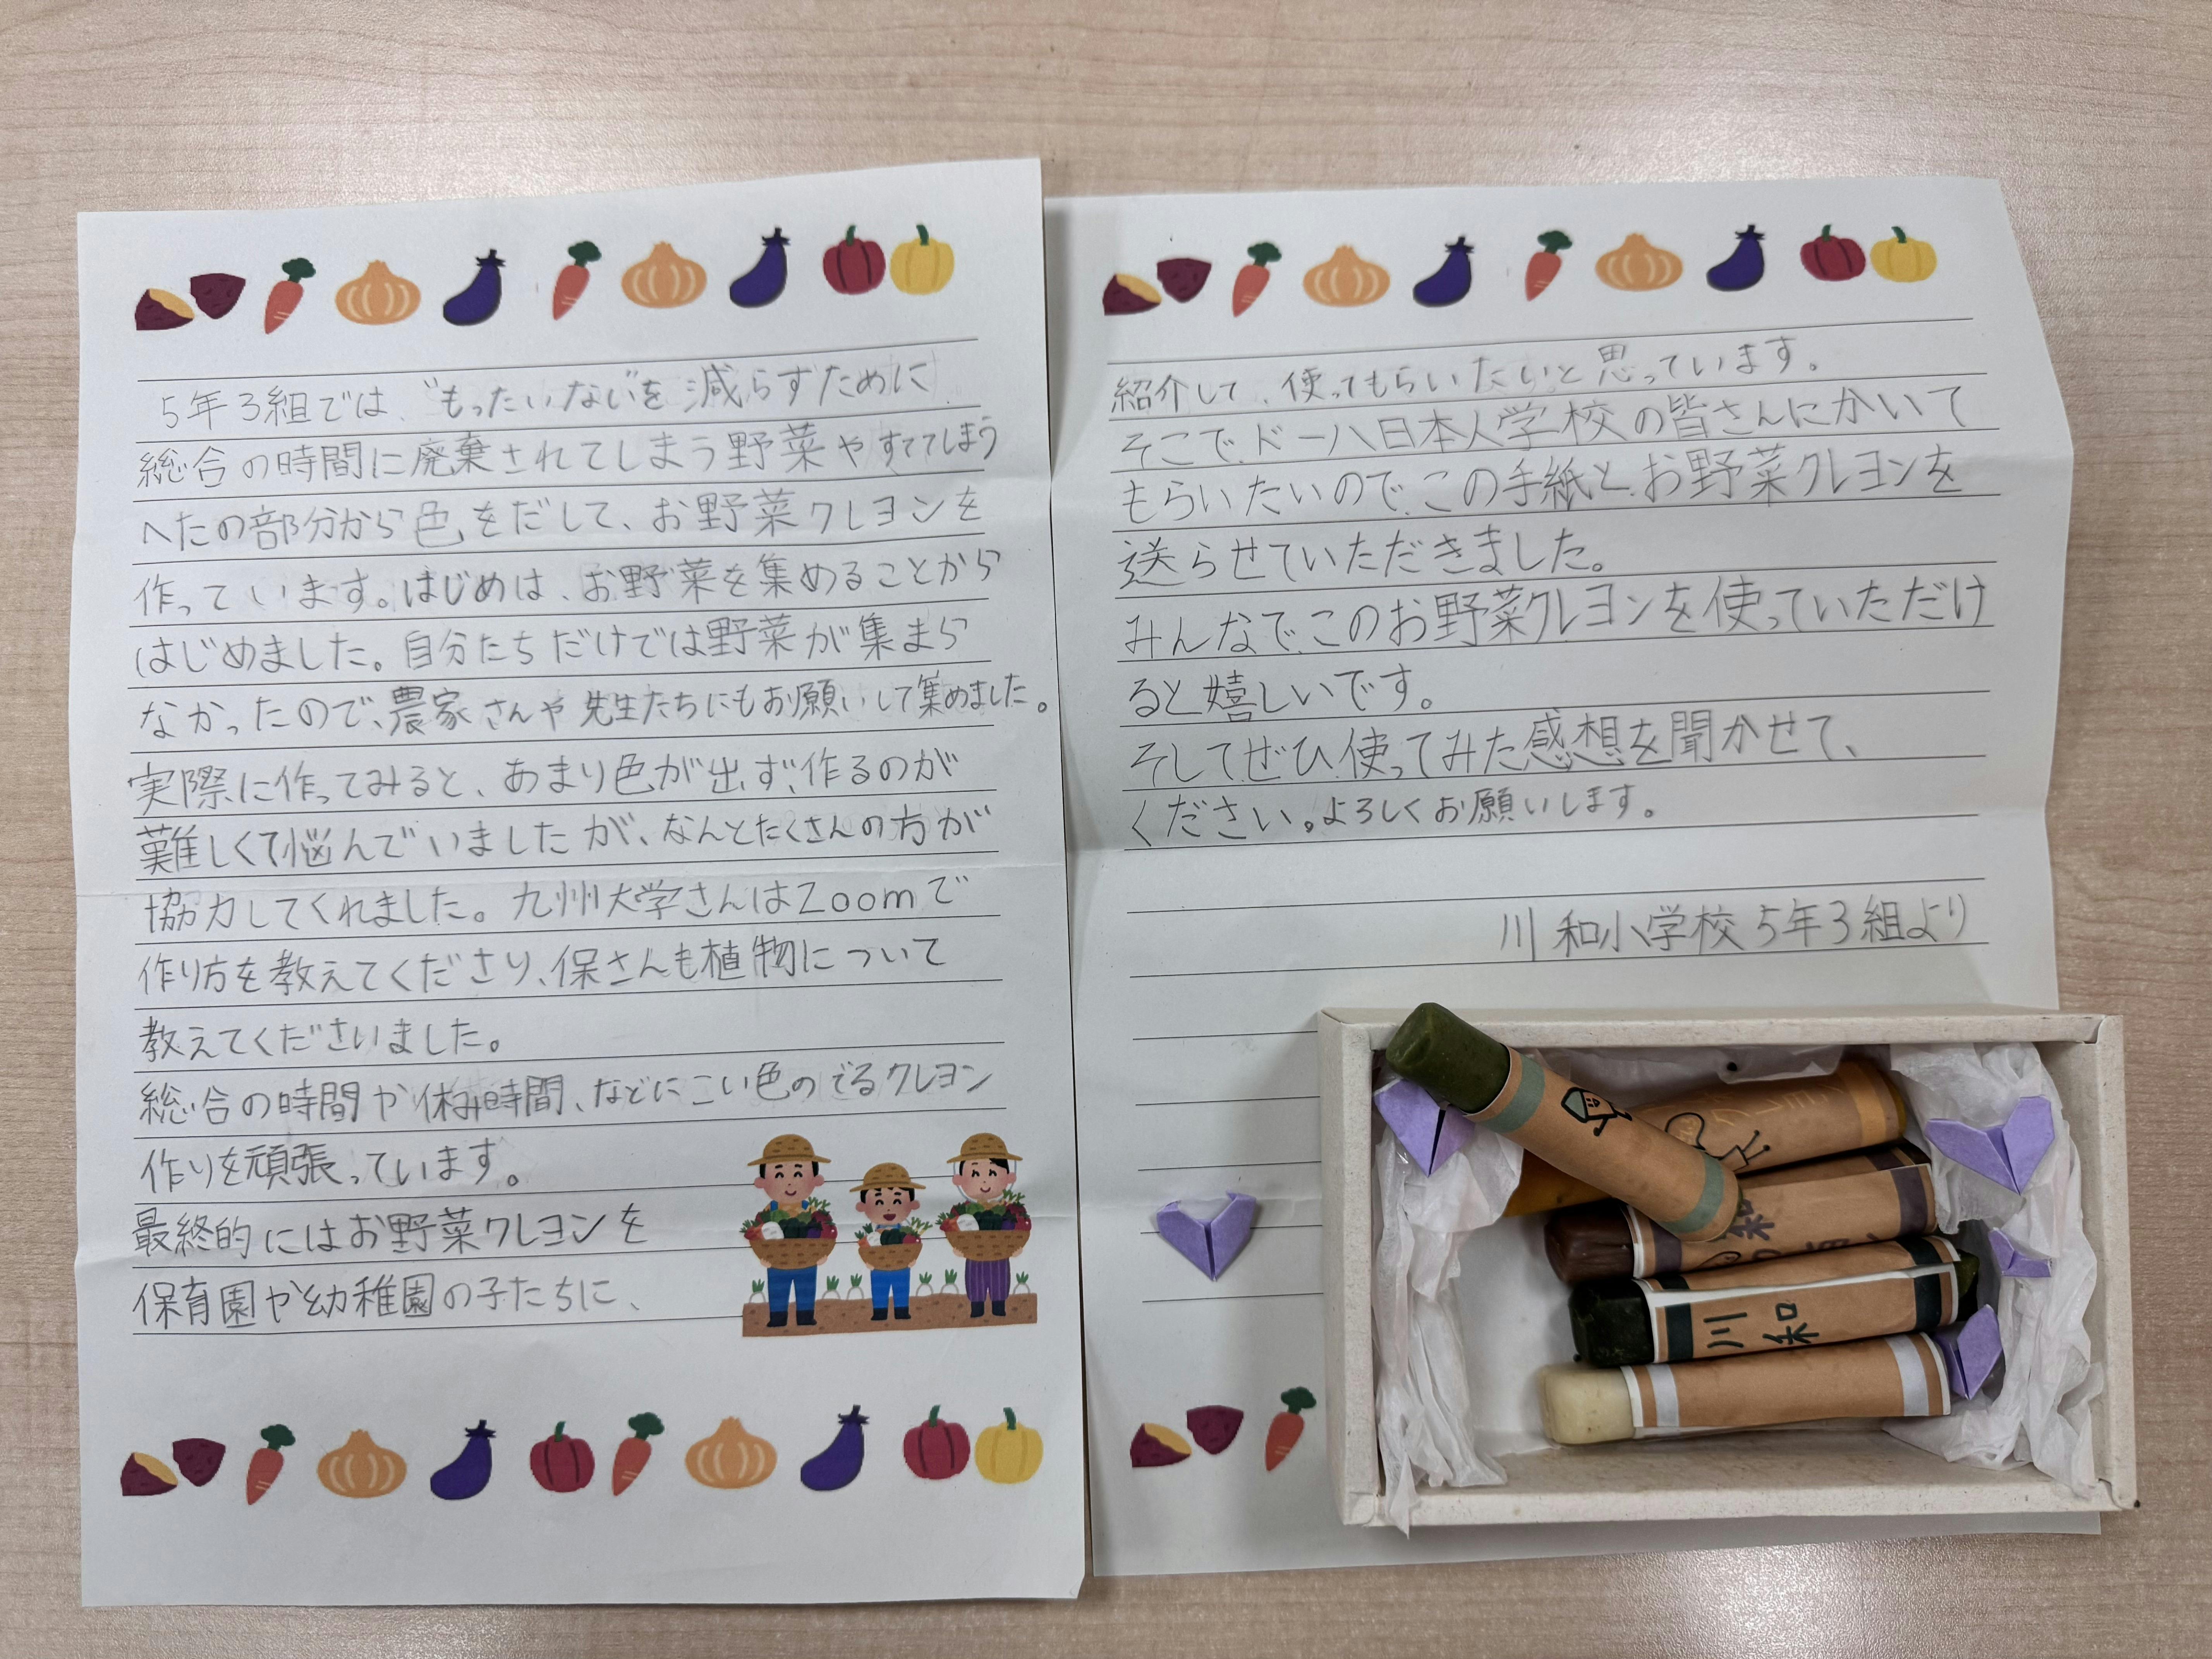 5年3組では、"もったいない"を減らすために、
総合の時間に廃棄されてしまう野菜やすててしまう
へたの部分から色をだして、お野菜クレヨンを
作っています。はじめは、お野菜を集めることから
はじめました。自分たちだけでは野菜が集まら
なかったので、農家さんや先生たちにもお願いして集めました。
実際に作ってみると、あまり色が出ず、作るのが
難しくて悩んでいましたが、なんとたくさんの方が
協力してくれました。九州大学さんはZoomで
作り方を教えてくださり、保さんも植物について
教えてくださいました。
総合の時間や休み時間、などにこい色のでるクレヨン
作りを頑張っています。
最終的にはお野菜クレヨンを
保育園や幼稚園の子たちに、
紹介して、使ってもらいたいと思っています。
そこで、ドーハ日本人学校の皆さんにかいて
もらいたいので、この手紙と、お野菜クレヨンを
送らせていただきました。
みんなで、このお野菜クレヨンを使っていただけ
ると嬉しいです。
そしてぜひ、使ってみた感想を聞かせて、
ください。よろしくお願いします。
川和小学校5年3組より
クレヨン
和
川和